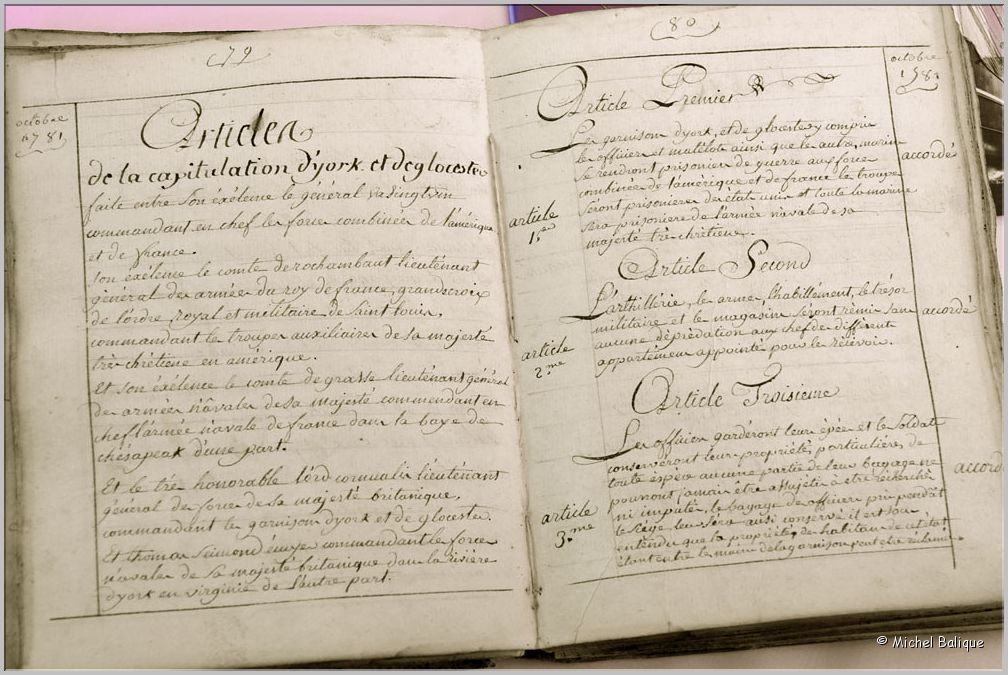 79
octobre
1781
Articles
de la capitulation d'york et de glocester
faite entre son éxélence le général vasingtom
commandant en chef les force combinées de l'amérique
et de france.
son éxélence le comte de rochambaut lieutenant
général des armées du roy de france, grandscroix
de l'ordre royal et militaire de saint louis,
commandant le troupes auxiliaires de sa majesté
très chrétiene en amérique.
Et son éxélence le comte de grasse lieutenant général
des armées navales de sa majesté commendant en
chef l'armée navale de france dans la baye de
chésapeak d'une part.
Et le trés honorable lord cornualis lieutenant
général des forces de sa majesté britanique,
commandant les garnison d'york et de glocester.
Et thomas seimond écuyer commandant les forces
navales de sa majesté britanique dans la rivière
d'york en virginie de l'autre part.
80
octobre
1781
Article Premier
article
1.er
Les garnison d'york, et de glocester y compris
les officiers et matelots ainsi que les autres marins
se rendront prisonier de guerre aux forces
combinées de l'amérique et de france. les troupes
séront prisonieres des états unis et toute la marine
sera prisoniere de l'armée navale de sa
majesté très chrétiene.
accordé
Article Second
article
2.me
L'arthillérie, les armes, l'habillément, le trésor
militaire et les magasins séront rémis sans
aucune déprédation aux chefs des différents
appartémens appointés pour les récévoirs.
accordé
Article Troisieme
article
3.me
Les officiers garderont leurs épées et les soldats
conserveront leurs propriétés particulières de
toute espéce aucune partie de leurs bagage ne
pourront jamais être assujetis a être réchérchés
ni impulés, les bagages des officiers pris pendant
le siége leur sera ausi conservé il est sous
entendu que la propriétés des habitans de cet état
étant entre les mains de la garnison peut être réclamé.
accordé
© Michel Balique